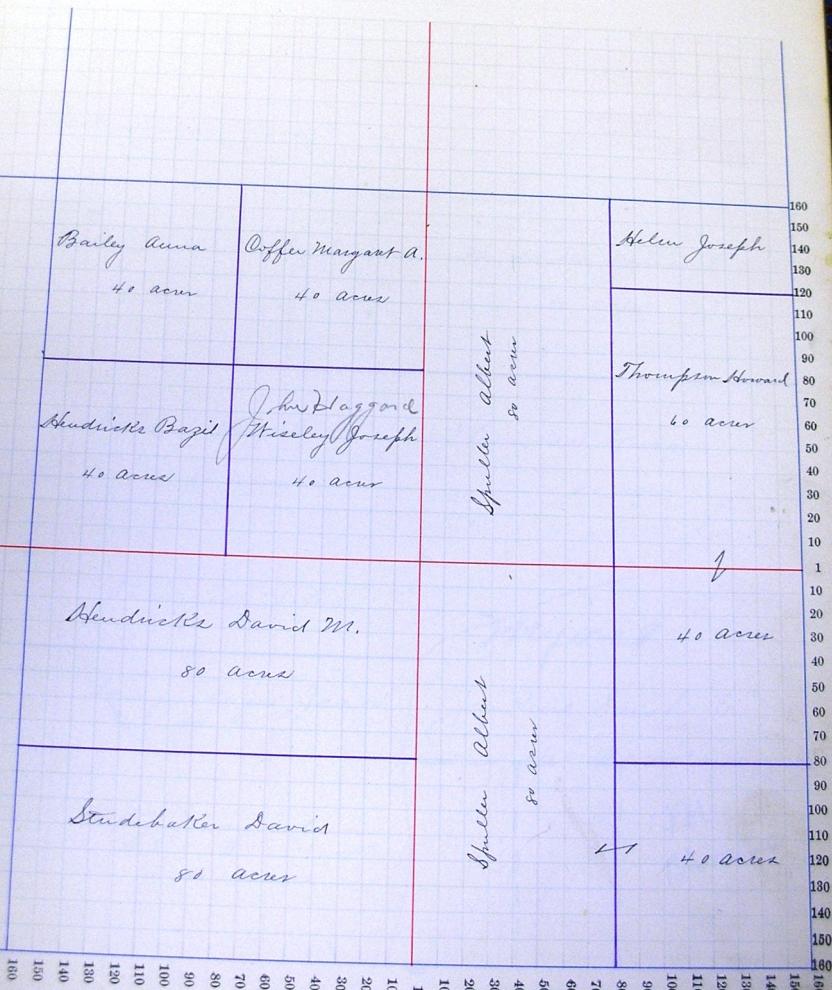 Bailey Anna
40 acres
Coffer Margaret A.
40 acres
Hendricks Bazil
40 acres
John Haggard
Wiseley Joseph
40 acres
Spuller Albert
80 acres
Helm Joseph
Thompson Howard
60 acres
Hendricks David M.
80 acres
Studebaker David
80 acres
Spuller Albert
80 acres
40 acres
40 acres
160
150
140
130
120
110
100
90
80
70
60
50
40
30
20
10
1
10
20
30
40
50
60
70
80
90
100
110
120
130
140
150
160
160 150 140 130 120 110 100 90 80 70 60 50 40 30 20 10 1 10 20 30 40 50 60 70 80 90 100 110 120 130 140 150 160